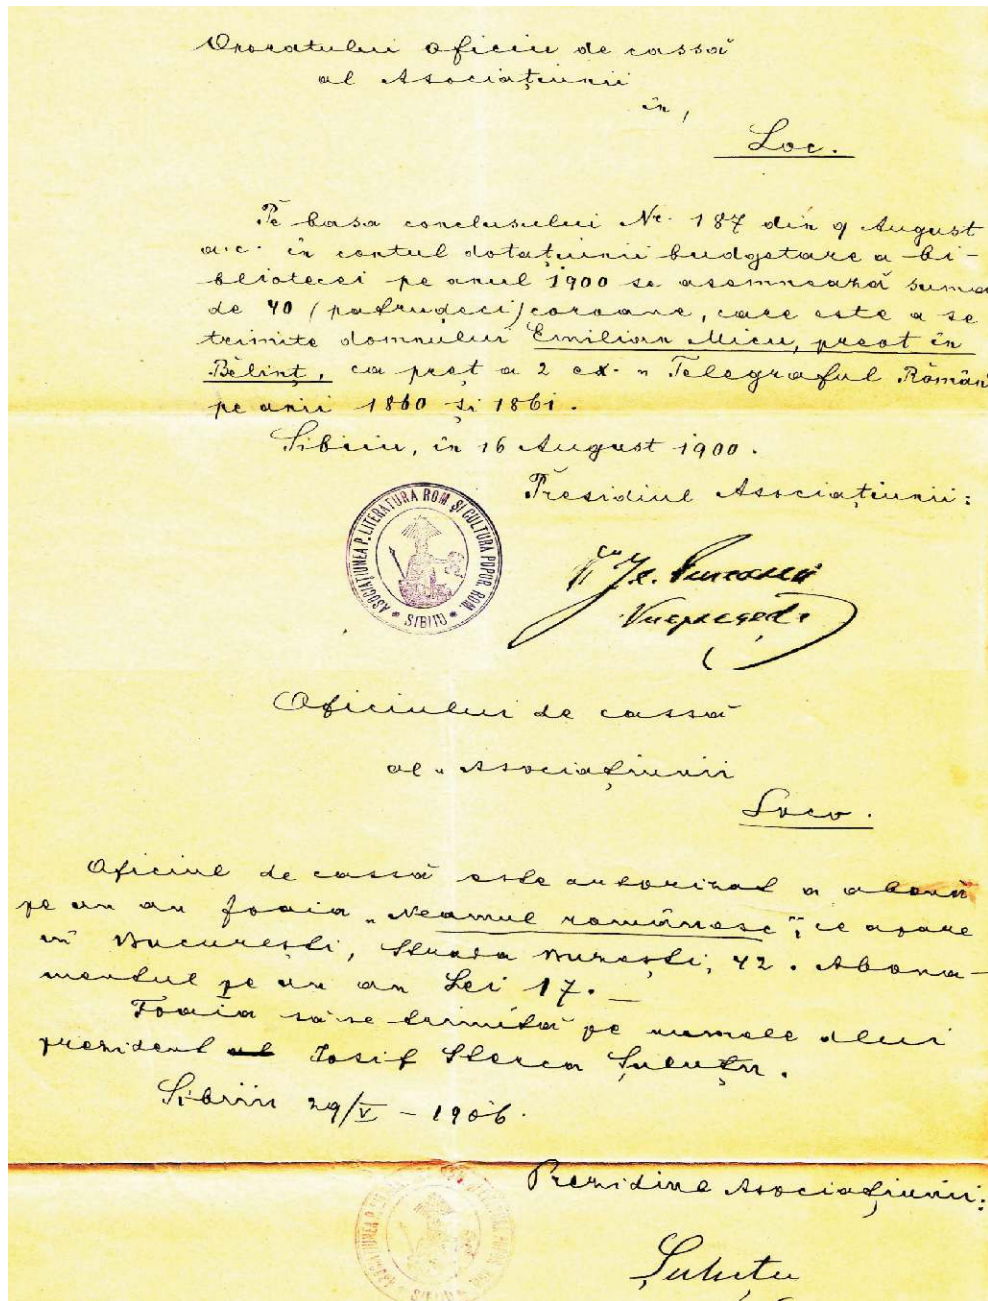 Onoratului oficiu de cassă
al Asociațiunii
în,
Loc.
Pe basa conclusului Nr. 187 din 9 August
a.c. în contul dotațiunii budgetare a bi-
bliotecei pe anul 1900 se asemnează suma
de 40 (patrudeci) coroane, care este a se
trimite domnului Emilian Micu, preot în
Bélinț, ca preț a 2 ex. " Telegraful Român
pe anii 1860 și 1861.
Sibiiu, în 16 August 1900.
Presidiul Asociațiunii:
ASOCIAȚIUNEA P. LITERATURA ROM. ȘI CULTURA POPOR. ROM.
* SIBIIU *
Vicepreșed.
Oficiului de cassă
al " Asociațiunii
Loco.
Oficiul de cassă este autorizat a abona
pe un an foaia „Neamul românesc", ce apare
în București, Strada 42. Abona-
mentul pe un an Lei 17.—
Foaia să se trimită pe numele dlui
prezident al Iosif Sterca Șuluțu.
Sibiiu 29/V – 1906.
Prezidiul Asociațiunii:
Șuluțu